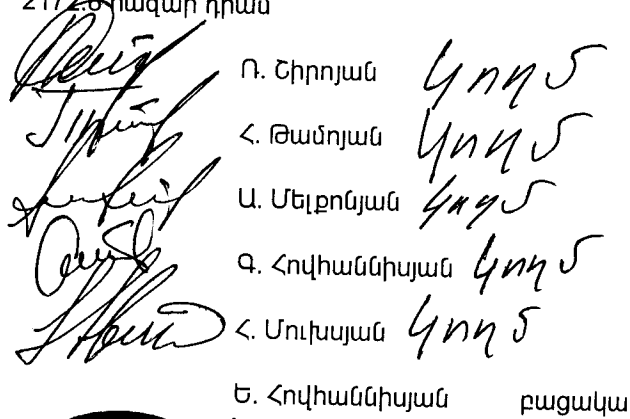 հազար դրամ
Ռ. Շիրոյան կողմ
Հ. Թամոյան կողմ
Ա. Մելքոնյան կողմ
Գ. Հովհաննիսյան կողմ
Հ. Մուխսյան կողմ
Ե. Հովհաննիսյան բացակա